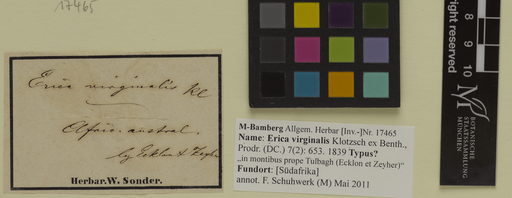 17465
Erica virginalis Kl
Afric. austral.
leg Ecklon & Zeyher
Herbar. W. Sonder.
M-Bamberg Allgem. Herbar [Inv.-]Nr. 17465
Name: Erica virginalis Klotzsch ex Benth.,
Prodr. (DC.) 7(2): 653. 1839 Typus?
„in montibus prope Tulbagh (Ecklon et Zeyher)“
Fundort: [Südafrika]
annot. F. Schuhwerk (M) Mai 2011
right reserved
8 9 10
M
BOTANISCHE
STAATSSAMMLUNG
MÜNCHEN